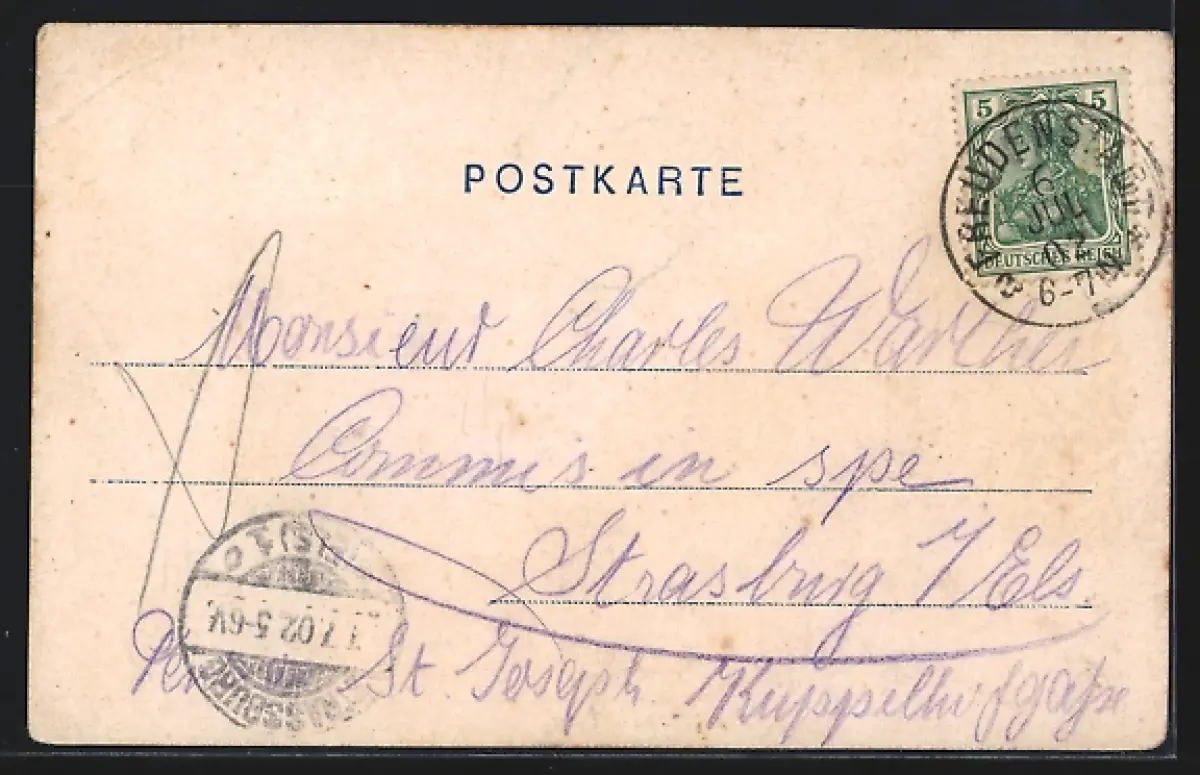 POSTKARTE
5 5
DEUTSCHES REICH
FREUDENSTADT
6
JUL
02
6-7N
Monsieur Charles Walther
Commis in spe
Strasburg i/Els.
7.02 5-6V
St. Joseph Kuppelhofgasse